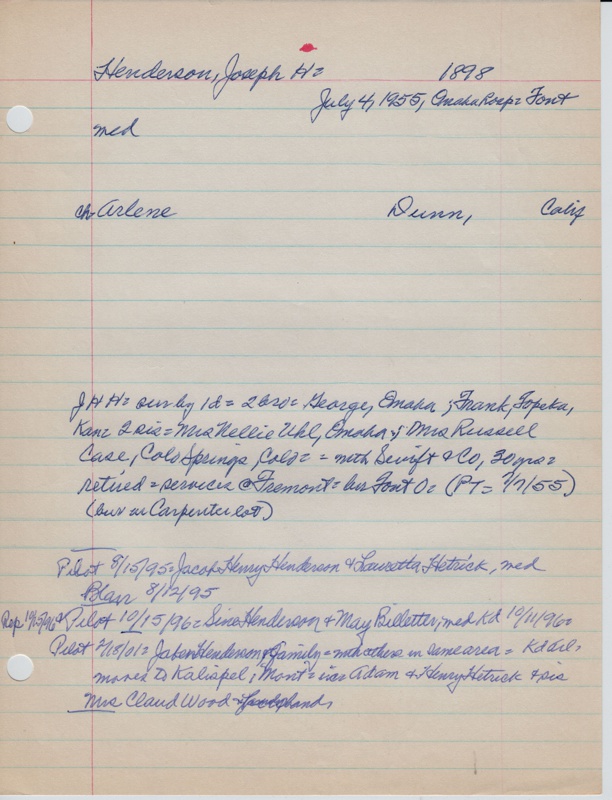 Henderson, Joseph H= 1898
July 4, 1955, Omaha Hosp= Font
med
ch Arlene Dunn, Calif
J H H= sur by 1d= 2 bro= George, Omaha ; Frank, Topeka,
Kan= 2 sis= Mrs Nellie Uhl, Omaha ; Mrs Russell
Case, Colo Springs, Colo= = with Swift & Co, 30 yrs=
retired= services @ Fremont= bur Font O= (PT= 7/7/55)
(bur in Carpenter lot)
Pilot 8/15/95= Jacob Henry Henderson & Lauretta Hetrick, med
Blair 8/12/95
Rep 10/15/96 & Pilot 10/15/96= Henderson & May Billetter, med Kd 10/11/96=
Pilot 2/18/01= Henderson & family= with others in same area= Kd
moves to Kalispel, Mont= Adam & Henry Hetrick & sis
Mrs Claud Wood